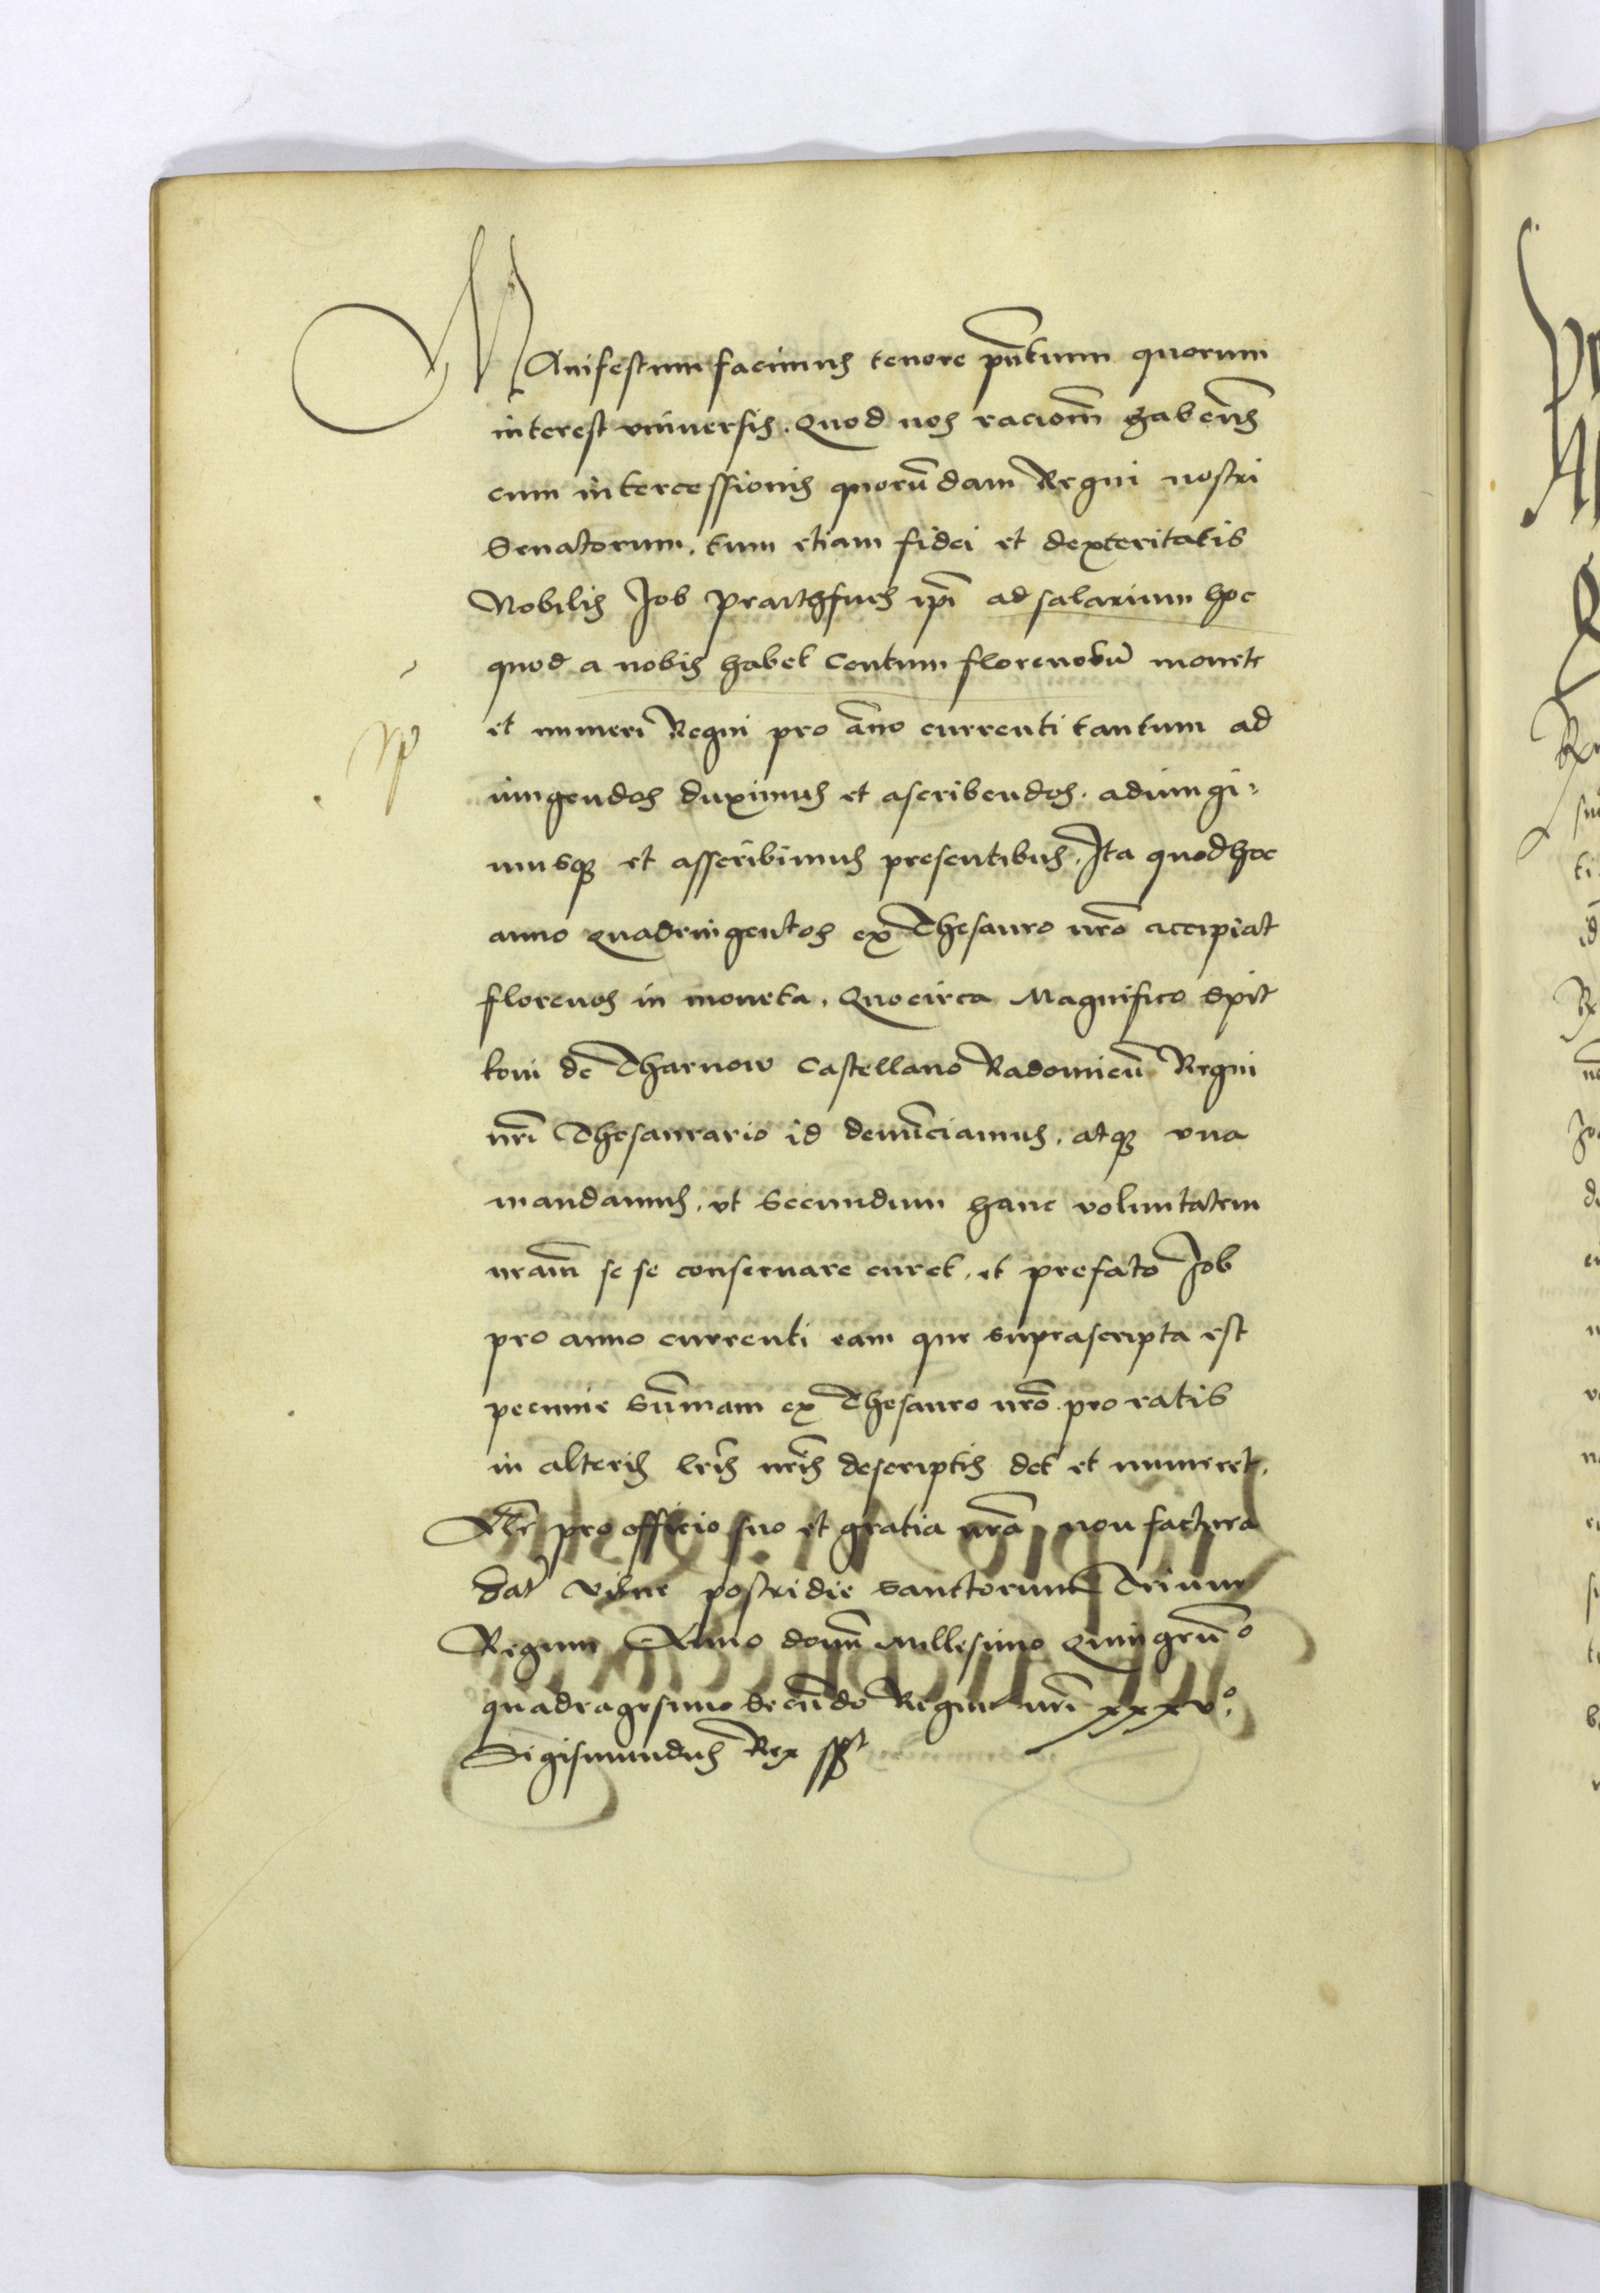 Manifestum facimus tenore pn̄tium quorum
interest vniuersis. Quod nos racionē habeñs
cum intercessionis quorūdam Regni nostri
Senatorum, tum etiam fidei et dexteritatis
Nobilis Job ip̄i ad salarium hoc
quod a nobis habet Centum florenorū monete
et numeri Regni pro āno currenti tantum ad
iungendos duximus et ascribendos. adiungi-
musq3 et asscribimus presentibus. Ita quod hoc
anno quadringentos ex Thesauro nrō accipiat
florenos in moneta. Quocirca Magnifico Spit
koni de Tharnow Castellano Radomieñ Regni
nrī Thesaurario id denūciamus, atq3 vna
mandamus, vt secundum hanc voluntatem
nram̄ se se conseruare curet, et prefato Job
pro anno currenti eam que suprascripta est
pecunie sūmam ex Thesauro nrō pro ratis
in alteris lrīs nrīs descriptis det et numeret.
pro officio suo et gratia nrā non factura
Dat Vilne postridie sanctorum Trium
Regum Anno domī Millesimo Quingenº
quadragesimo secūdo Regni nrī xxxvº.
Sigismundus Rex sst